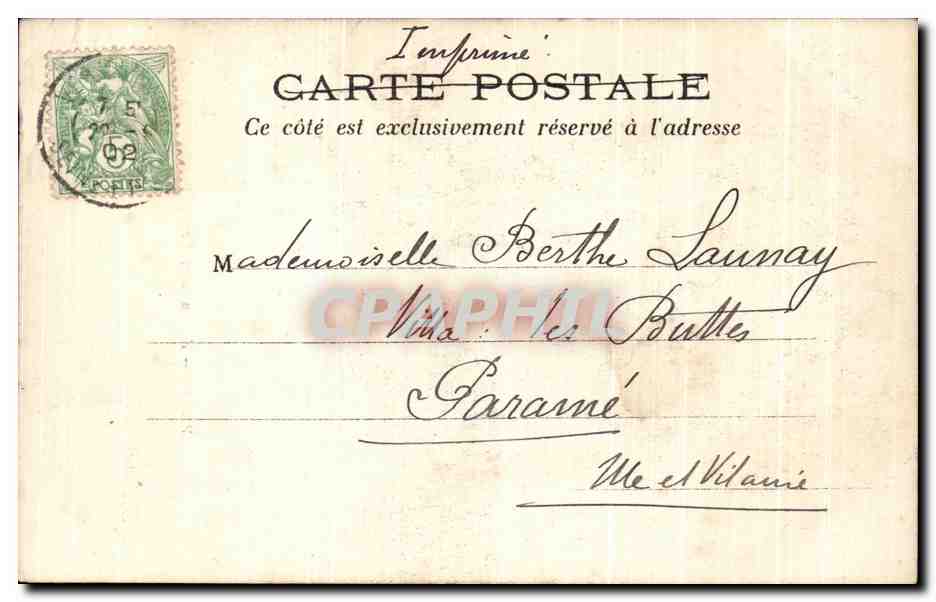 Imprimé
CARTE POSTALE
Ce côté est exclusivement réservé à l'adresse
Mademoiselle Berthe Launay
Villa : les Buttes
Paramé
Ille et Vilaine
CPAPHIL
7 5
02
5
POSTES